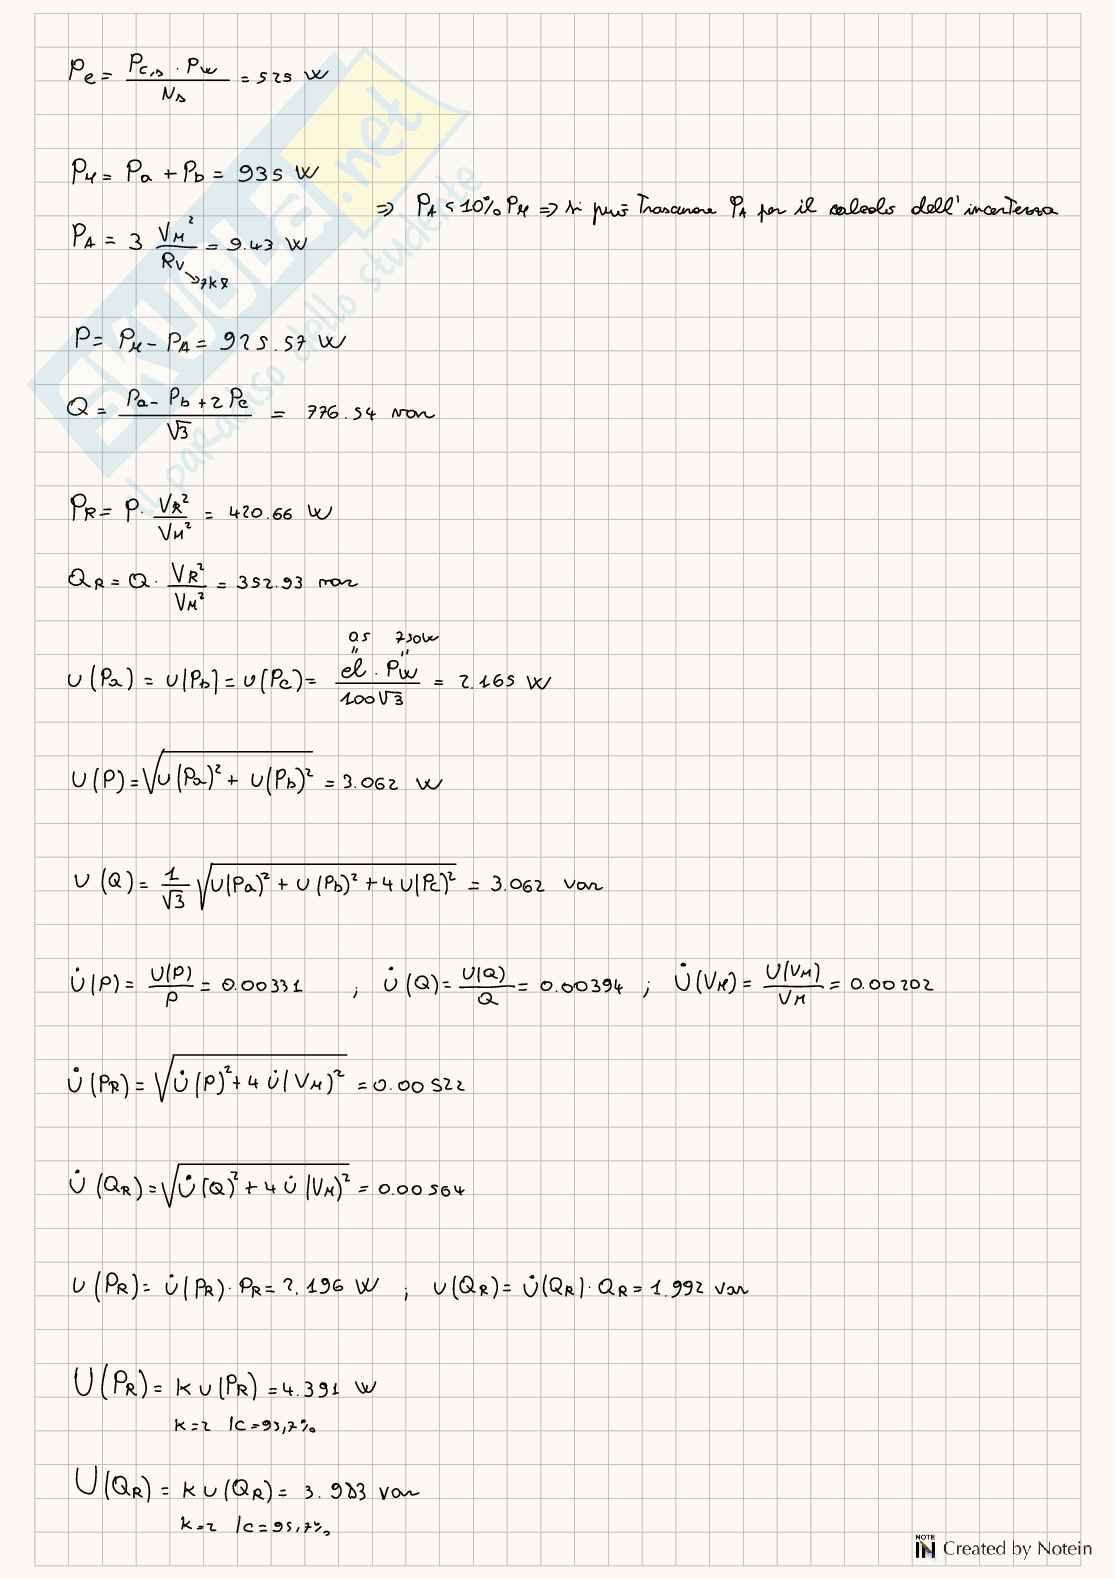 Pc = Pc,s · Pw / Ns = 525 W
PM = Pa + Pb = 935 W
⇒ PA < 10% PM ⇒ si può Trascurare PA per il calcolo dell'incertezza
PA = 3 VM² / RV = 9.43 W
P = PM - PA = 925.57 W
Q = Pa - Pb + 2 Pc / √3 = 776.54 var
PR = P · VR² / VM² = 420.66 W
QR = Q · VR² / VM² = 352.93 var
u(Pa) = u(Pb) = u(Pc) = cl · Pw / 100√3 = 2.165 W
u(P) = √u(Pa)² + u(Pb)² = 3.062 W
u(Q) = 1/√3 √u(Pa)² + u(Pb)² + 4 u(Pc)² = 3.062 var
u̇(P) = u(P) / P = 0.00331 ; u̇(Q) = u(Q) / Q = 0.00394 ; u̇(VM) = u(VM) / VM = 0.00202
u̇(PR) = √u̇(P)² + 4 u̇(VM)² = 0.00522
u̇(QR) = √u̇(Q)² + 4 u̇(VM)² = 0.00564
u(PR) = u̇(PR) · PR = 2.196 W ; u(QR) = u̇(QR) · QR = 1.992 var
U(PR) = K u(PR) = 4.391 W
K=2 lc=95,7%
U(QR) = K u(QR) = 3.983 var
K=2 lc=95,7%
SKUOLA.net
il paradiso dello studente
NOTE IN Created by Notein